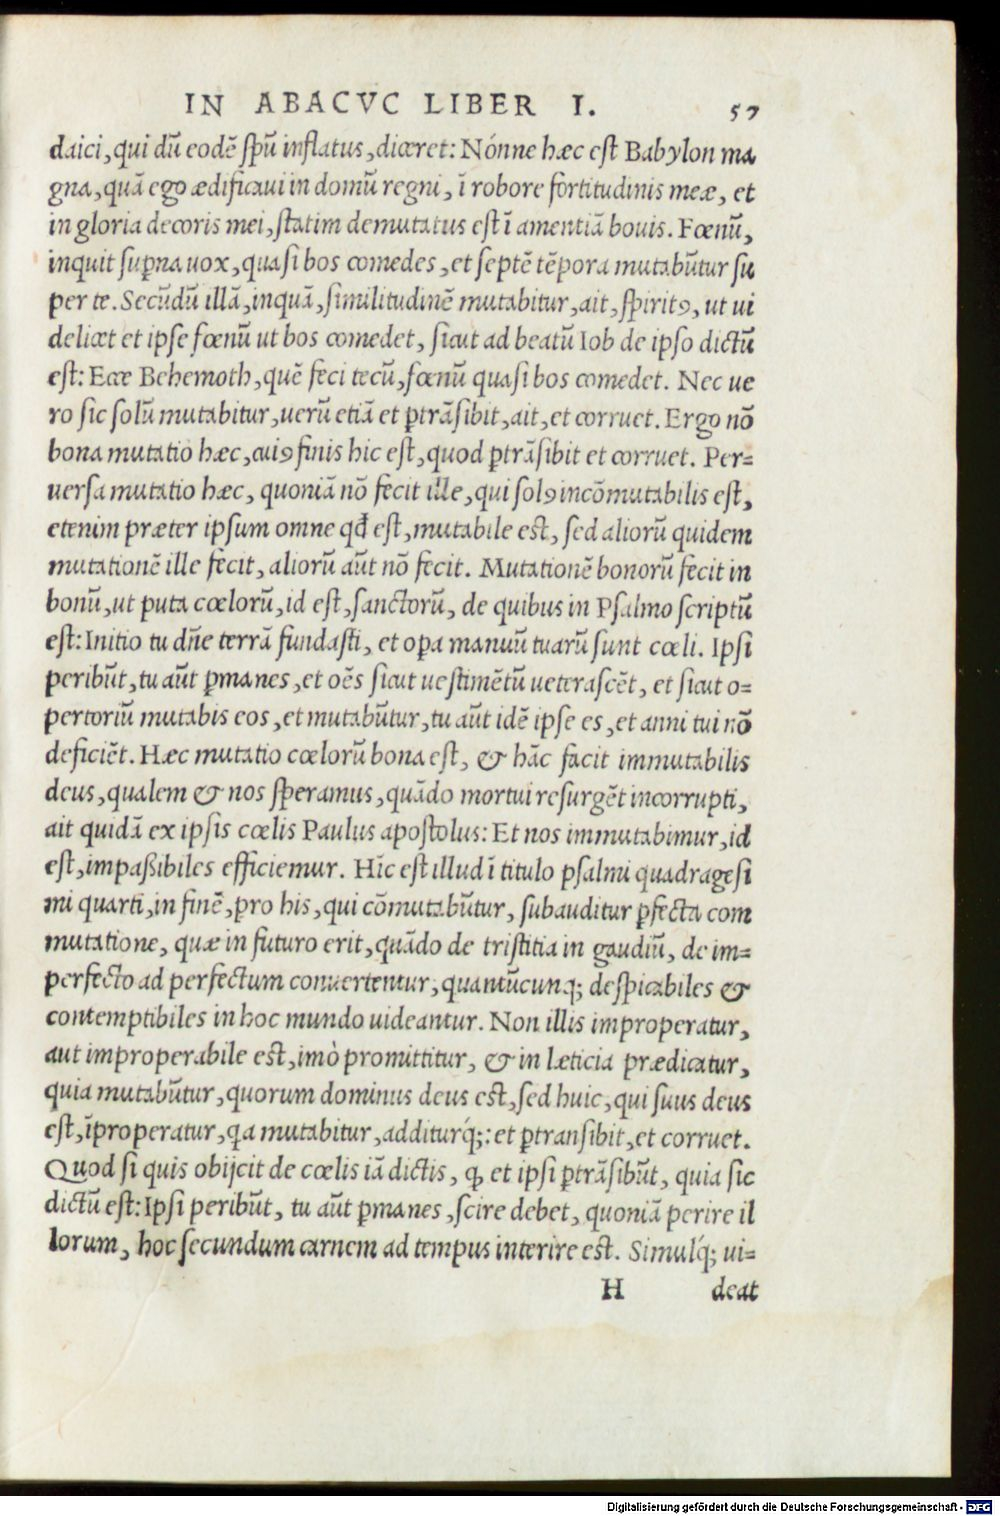 IN ABACVC LIBER I. 57
daici, qui dũ eodẽ spũ inflatus, diceret: Nónne hæc est Babylon ma
gna, quã ego ædificaui in domũ regni, ĩ robore fortitudinis meæ, et
in gloria decoris mei, statim demutatus est ĩ amentiã bouis. Fœnũ,
inquit suꝑna uox, quasi bos comedes, et septẽ tẽpora mutabũtur su
per te. Secũdũ illã, inquã, similitudinẽ mutabitur, ait, spiritꝰ, ut ui
delicet et ipse fœnũ ut bos comedet, sicut ad beatũ Iob de ipso dictũ
est: Ecce Behemoth, quẽ feci tecũ, fœnũ quasi bos comedet. Nec ue
ro sic solũ mutabitur, uerũ etiã et ꝑtrãsibit, ait, et corruet. Ergo nõ
bona mutatio hæc, cuiꝰ finis hic est, quod ꝑtrãsibit et corruet. Per-
uersa mutatio hæc, quoniã nõ fecit ille, qui solꝰ incõmutabilis est,
etenim præter ipsum omne qđ est, mutabile est, sed aliorũ quidem
mutationẽ ille fecit, aliorũ aũt nõ fecit. Mutationẽ bonorũ fecit in
bonũ, ut puta cœlorũ, id est, sanctorũ, de quibus in Psalmo scriptũ
est: Initio tu dñe terrã fundasti, et oꝑa manuũ tuarũ sunt cœli. Ipsi
peribũt, tu aũt ꝑmanes, et oẽs sicut uestimẽtũ ueterascẽt, et sicut o-
pertoriũ mutabis eos, et mutabũtur, tu aũt idẽ ipse es, et anni tui nõ
deficiẽt. Hæc mutatio cœlorũ bona est, & hãc facit immutabilis
deus, qualem & nos speramus, quãdo mortui resurgẽt incorrupti,
ait quidã ex ipsis cœlis Paulus apostolus: Et nos immutabimur, id
est, impaßibiles efficiemur. Hĩc est illud ĩ titulo psalmi quadragesi
mi quarti, in finẽ, pro his, qui cõmutabũtur, subauditur ꝑfecta com
mutatione, quæ in futuro erit, quãdo de tristitia in gaudiũ, de im-
perfecto ad perfectum conuertentur, quantũcunq; despicabiles &
contemptibiles in hoc mundo uideantur. Non illis improperatur,
aut improperabile est, imò promittitur, & in læticia prædicatur,
quia mutabũtur, quorum dominus deus est, sed huic, qui suus deus
est, ĩproperatur, qa mutabitur, additurq́;: et ꝑtransibit, et corruet.
Quod si quis obijcit de cœlis iã dictis, ꝙ et ipsi ꝑtrãsibũt, quia sic
dictũ est: Ipsi peribũt, tu aũt ꝑmanes, scire debet, quoniã perire il
lorum, hoc secundum carnem ad tempus interire est. Simulq́; ui-
H deat
Digitalisierung gefördert durch die Deutsche Forschungsgemeinschaft - DFG